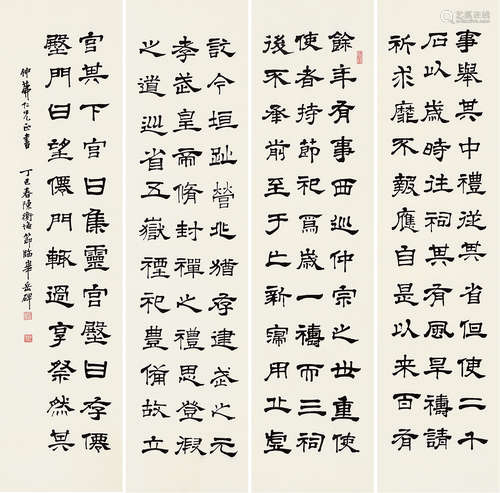 事舉其中禮從其省但使二千
石以歲時往祠其有風旱禱請
祈求靡不報應自是以來百有
餘年有事西巡仲宗之世重使
使者持節祀焉歲一禱而三祠
後不承前至于亡新寖用丘虛
訖今垣趾營兆猶存建武之元
孝武皇帝脩封禪之禮思登假
之道巡省五嶽禋祀豐備故立
宮其下宮曰集靈宮壂曰存僊
壂門曰望僊門輒過享祭然其
仁兄正書 丁巳春陳衡恪節臨華岳碑